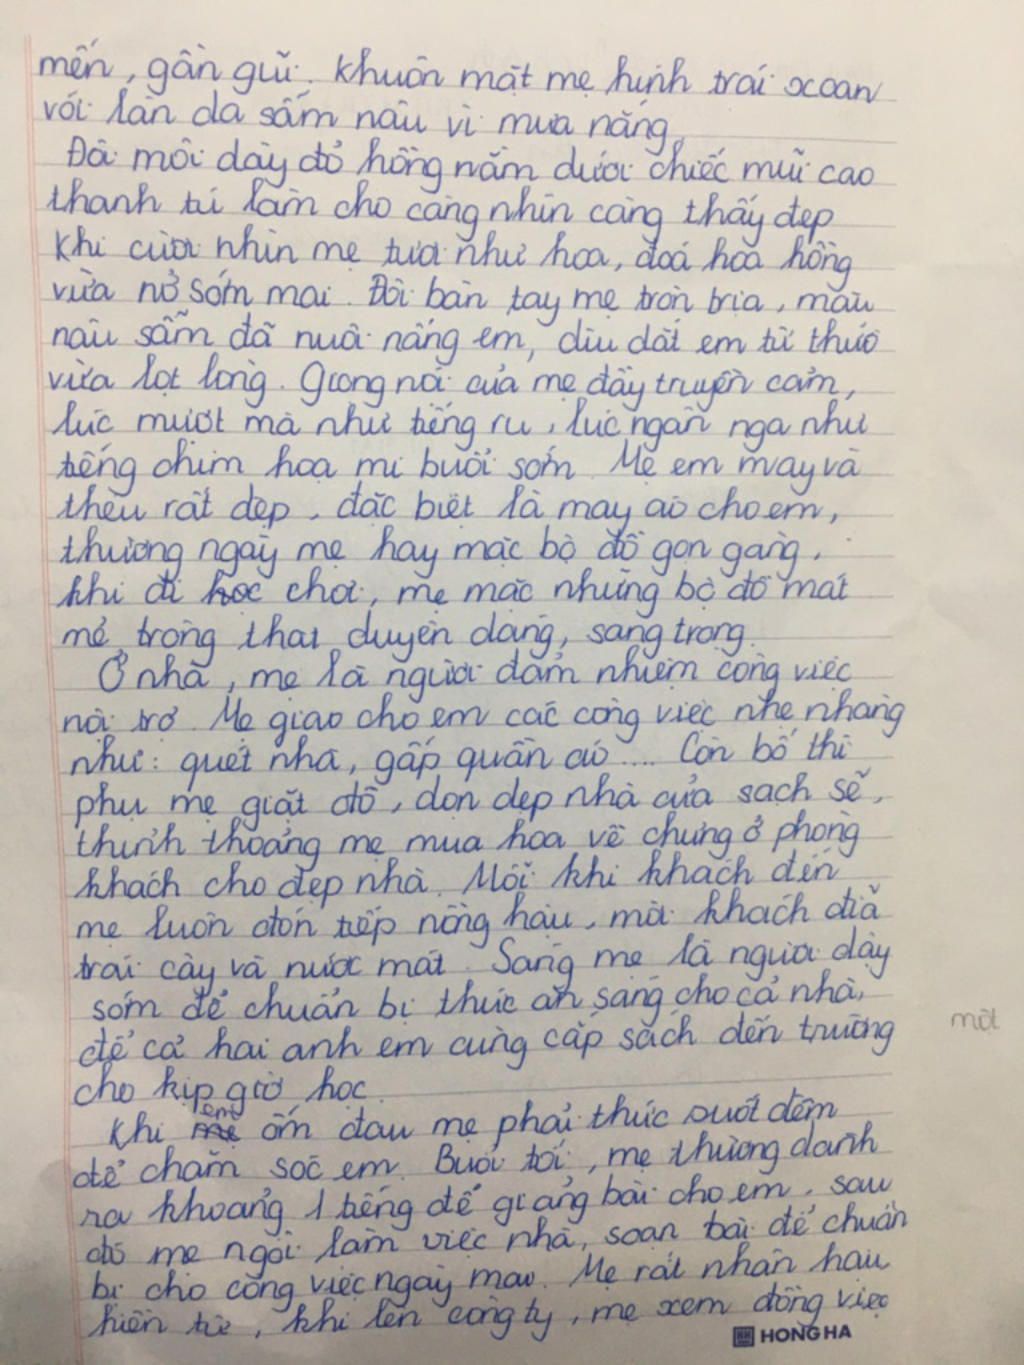 mến, gần gũi. Khuôn mặt mẹ hình trái xoan
với làn da sấm nâu vì mưa nắng.
Đôi môi dày đỏ hồng nằm dưới chiếc mũi cao
thanh tú làm cho càng nhìn càng thấy đẹp
Khi cười nhìn mẹ tươi như hoa, đoá hoa hồng
vừa nở sớm mai. Đôi bàn tay mẹ tròn trịa, màu
nâu sẫm đã nuôi nấng em, dìu dắt em từ thuở
vừa lọt lòng. Giọng nói của mẹ đầy truyền cảm,
lúc mượt mà như tiếng ru, lúc ngân nga như
tiếng chim hoạ mi buổi sớm. Mẹ em may và
thêu rất đẹp, đặc biệt là may áo cho em,
thường ngày mẹ hay mặc bộ đồ gọn gàng,
khi đi chơi, mẹ mặc những bộ đồ mát
mẻ, trông thật duyên dáng, sang trọng.
Ở nhà, mẹ là người đảm nhiệm công việc
nội trợ. Mẹ giao cho em các công việc nhẹ nhàng
như: quét nhà, gấp quần áo.... Còn bố thì
phụ mẹ giặt đồ, dọn dẹp nhà cửa sạch sẽ,
thỉnh thoảng mẹ mua hoa về chưng ở phòng
khách cho đẹp nhà. Mỗi khi khách đến
mẹ luôn đón tiếp nồng hậu, mời khách đĩa
trái cây và nước mát. Sáng mẹ là người dậy
sớm để chuẩn bị thức ăn sáng cho cả nhà,
để cả hai anh em cùng cắp sách đến trường
một
cho kịp giờ học.
Khi em ốm đau mẹ phải thức suốt đêm
để chăm sóc em. Buổi tối, mẹ thường dành
ra khoảng 1 tiếng để giảng bài cho em, sau
đó mẹ ngồi làm việc nhà, soạn bài để chuẩn
bị cho công việc ngày mai. Mẹ rất nhân hậu
hiền từ, khi lên công ty, mẹ xem đồng việc
HONG HA